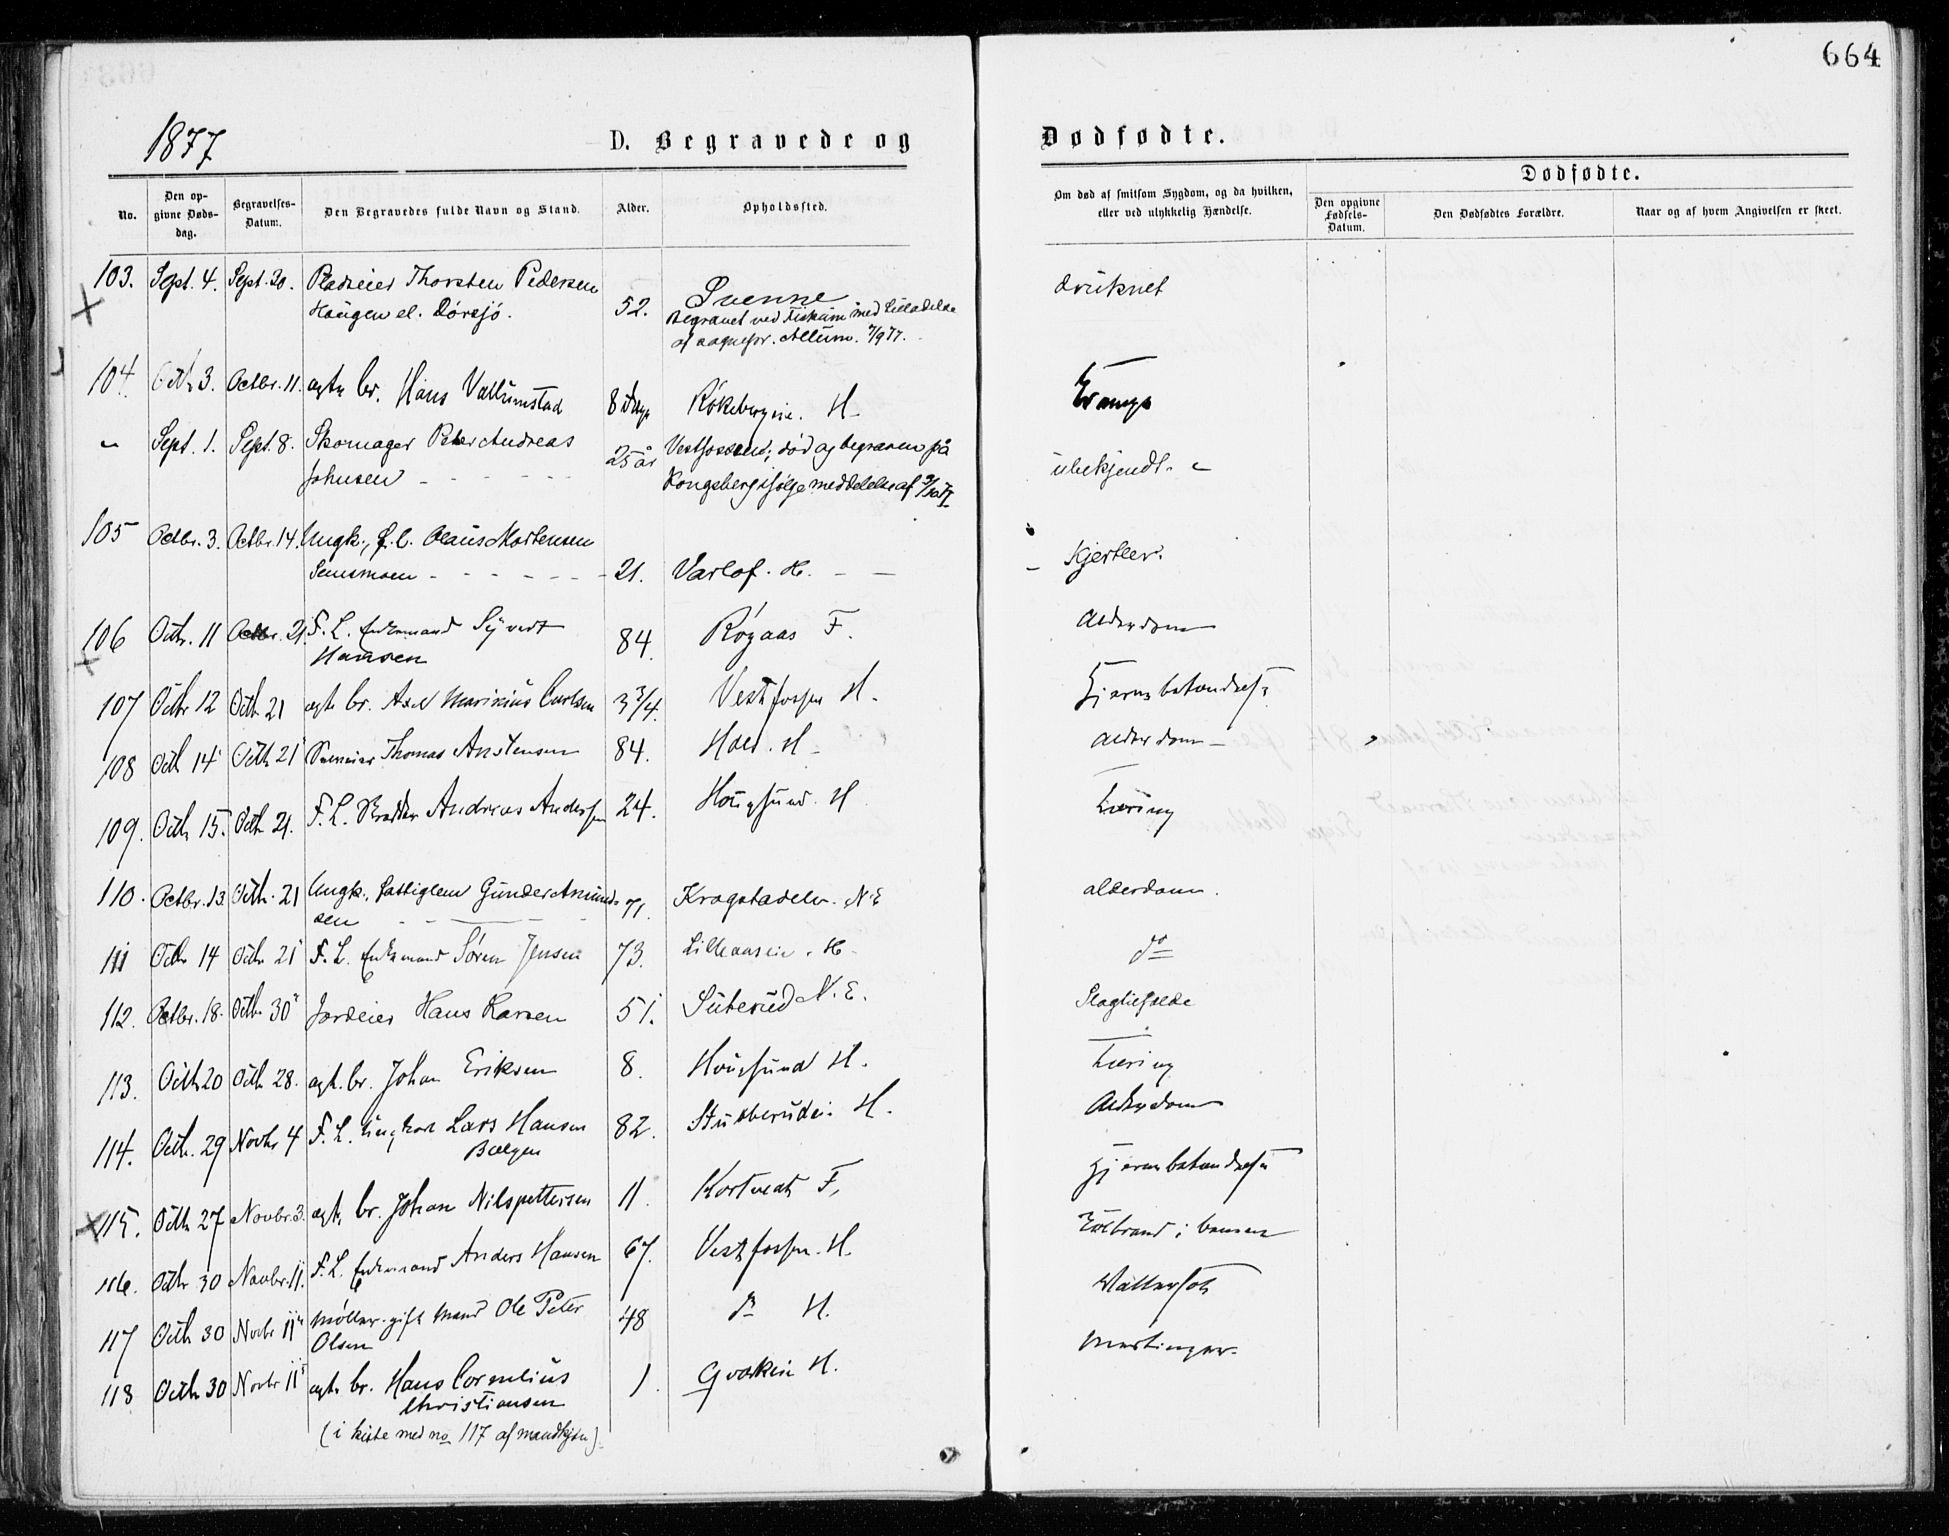 664
1877
D. Begravede og Dødfødte.
No.
Den opgivne Dødsdag.
Begravelses-Datum.
Den Begravedes fulde Navn og Stand.
Alder.
Opholdssted.
Om død af smitsom Sygdom, og da hvilken, eller ved ulykkelig Hændelse.
Dødfødte.
Den opgivne Fødsels-Datum.
Den Dødfødtes Forældre.
Naar og af hvem Angivelsen er skeet.
103. Sept. 4. Sept. 30. Pladseier Thorsten Pedersen druknet
Haugen el. Dørsjö. 52. Svenne
Begravet ved Fiskum med tilladelse
af sognepr. Allum. 7/9 77.
104. Octb 3. Octbr. 11. agte br. Hans Vallumstad 8 dage Røkebergeie. H. Krampe
" Sept. 1. Sept. 8. Skomager Peter Andreas 25 år Vestfossen; død og begraven på ubekjendt.
Johnsen Kongsberg ifølge meddelelse af
105 Octbr. 3. Octbr. 14. Ungk., f.l. Olaus Mortensen
21. Varlof. H. Kjertler.
106 Octb. 11 Octbr. 21. F. L. Enkemand Syvert 84. Røgaas F. Alderdom
Hansen
107 Octbr 12 Octb 21 agte br. Axel Marinius Carlsen 3 3/4. Vestfossen H. Hjernebetændelse
108 Octb 14 Octb 21 Thomas Anstensen 84. Hals. H. Alderdom
109. Octb 15. Octb 21. F. L. Andreas Anderssen 24. Hougsund. H. Tæring
110. Octbr. 13 Octb. 21 Ungk., Fattiglem Gunder Amund- 71. Kragstadelv. N.E alderdom.
sen
111 Octb 14 Octb 21 F. L. Enkemand Søren Jensen 73. Lilleaasen. H. do
112. Octbr. 18. Octb. 30 Jordeier Hans Larsen 51. Suterud N. E. Slagtilfælde
113. Octb 20 Octb 28. agt. br. Johan Eriksen 8. Hougsund H. Tæring
114. Octb. 29 Novbr 4 F. L. Ungkarl Lars Hansen 82. Stubberudeie H. Alderdom
Bælgen
115. Octb 27 Novbr. 3. agte br. Johan Nilspettersen 11. Kortvedt F. Hjernebetændelse
116. Octbr 30 Novbr. 11. F. L. Enkemand Anders Hansen 67. Vestfossen. H. Kulbrand i benene
117 Octb 30 Novbr 11 Møller. gift Mand Ole Peter 48 do H. Vattersot
Olsen
118 Octb 30 Novbr 11 agte br. Hans Cornelius 1. Groskeie H. Mæslinger.
Christiansen
(i kiste med no 117 af mandkjøn).